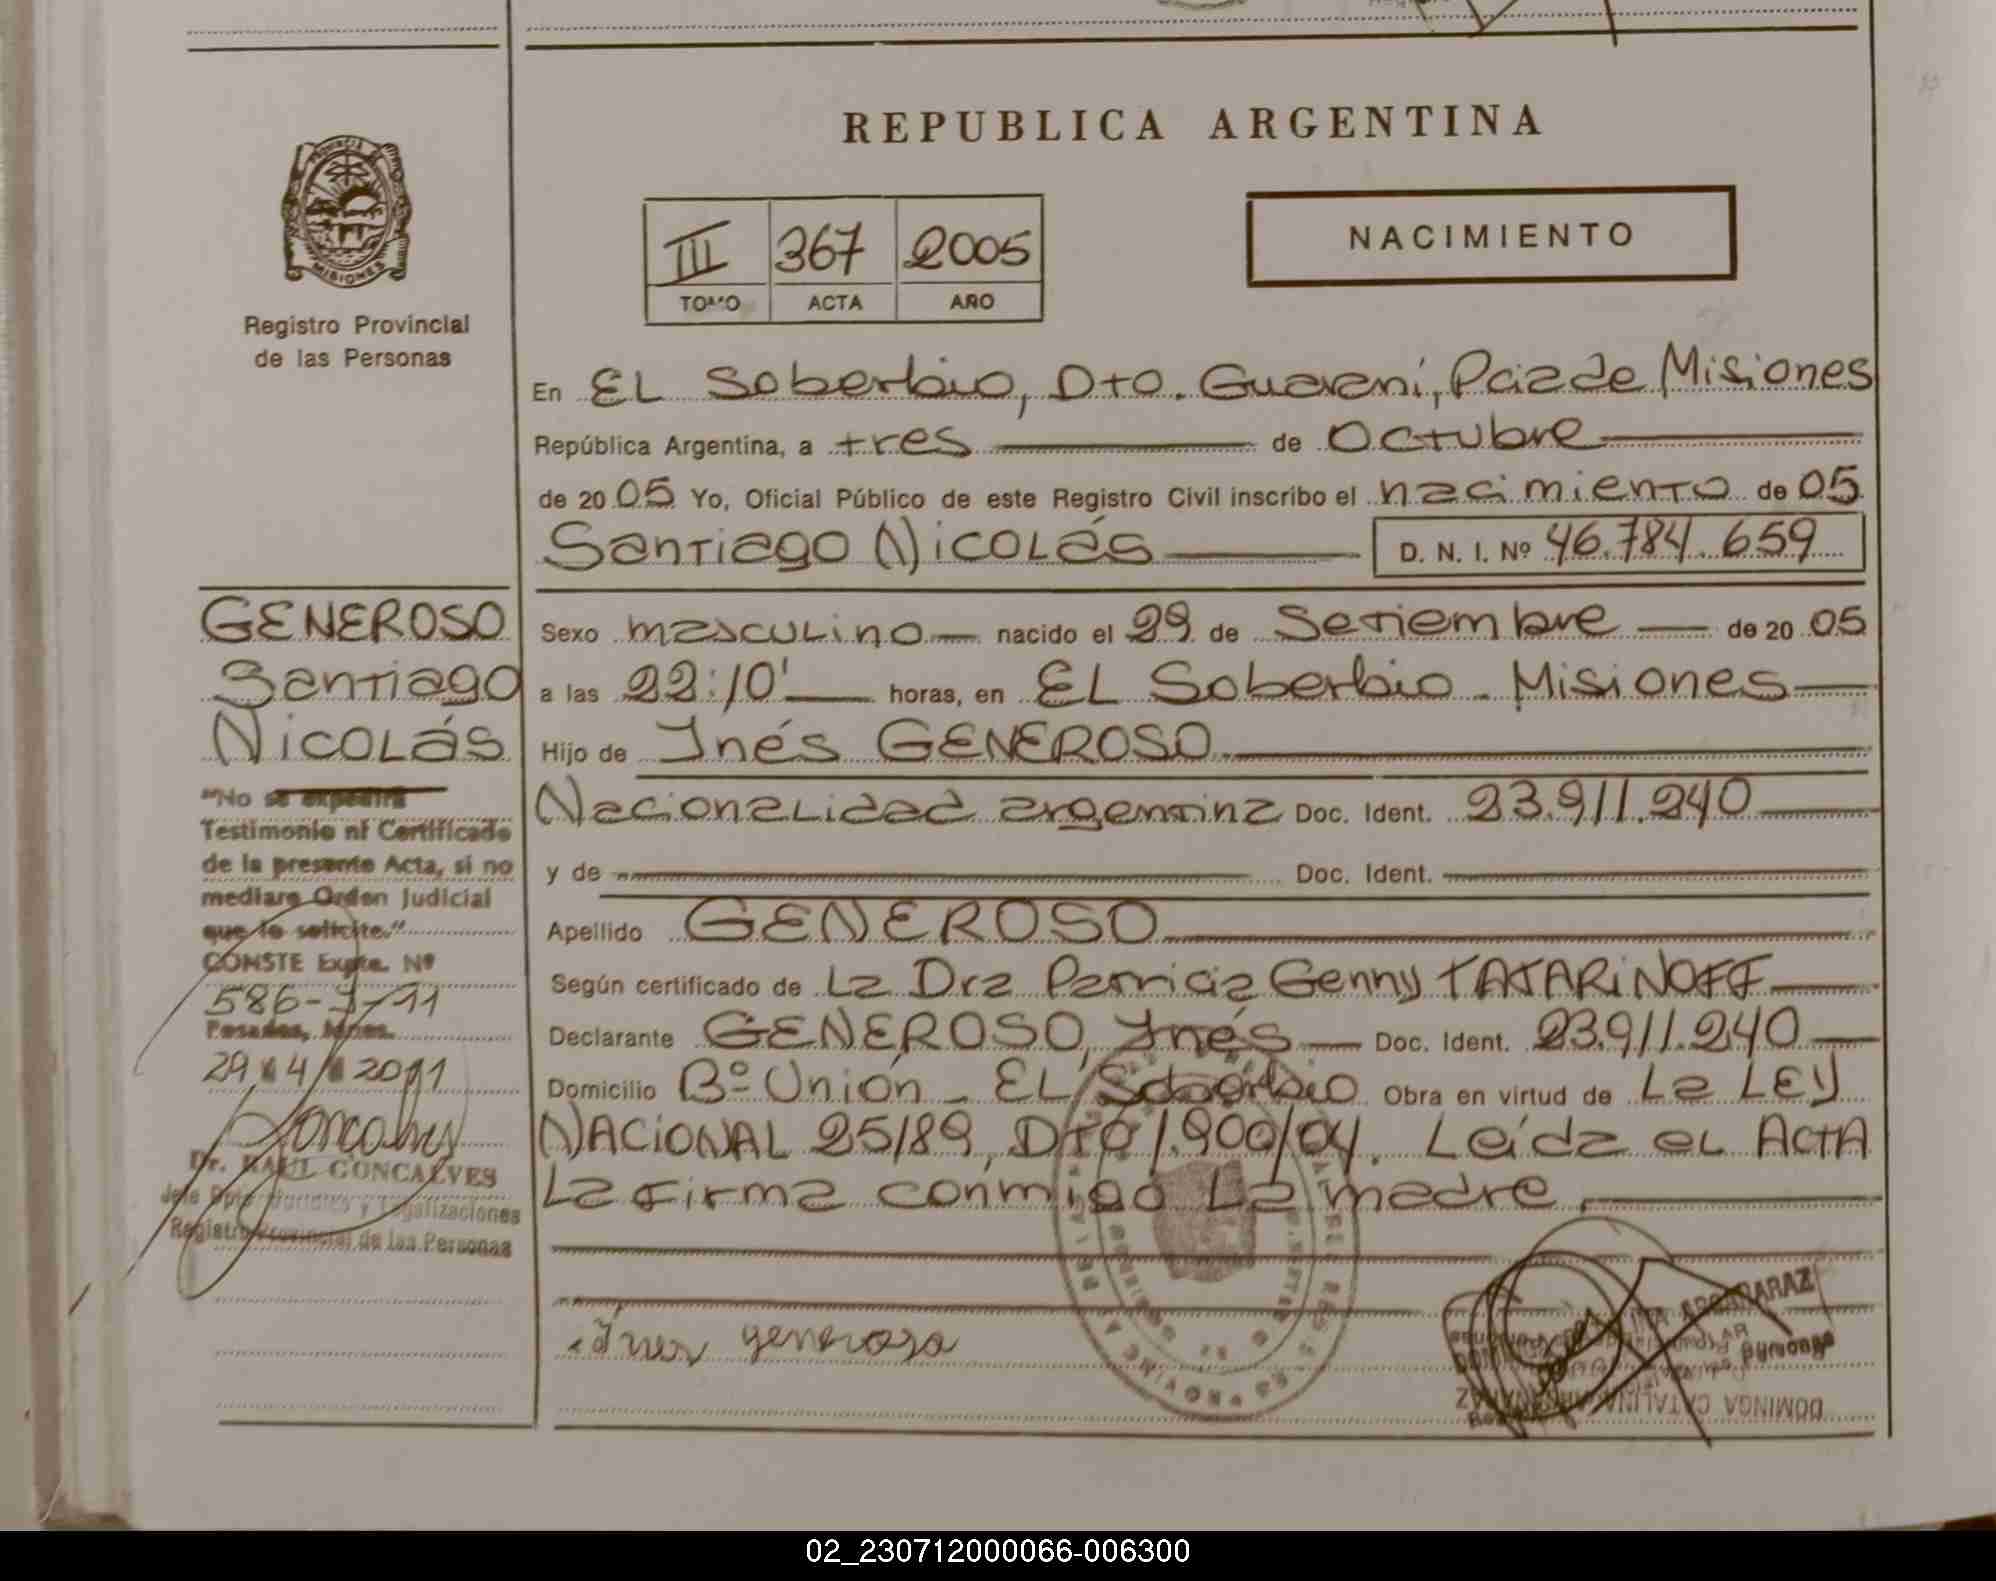 REPUBLICA ARGENTINA
PROVINCIA DE
MISIONES
Registro Provincial
de las Personas
III 367 2005
TOMO ACTA AÑO
NACIMIENTO
En EL Soberbio, Dto. Guaraní, Pcia de Misiones
República Argentina, a tres de Octubre
de 20 05 Yo, Oficial Público de este Registro Civil inscribo el nacimiento de 05
Santiago Nicolás D. N. I. Nº 46.784.659
Sexo masculino nacido el 29 de Setiembre de 20 05
a las 22:10' horas, en EL Soberbio - Misiones
Hijo de Inés GENEROSO
Nacionalidad argentina Doc. Ident. 23.911.240
y de Doc. Ident.
Apellido GENEROSO
Según certificado de La Dra Patricia Genny TATARiNOFF
Declarante GENEROSO, Inés Doc. Ident. 23.911.240
Domicilio Bº Unión - EL Soberbio Obra en virtud de La LEY
NACIONAL 25/89, DTO 1.900/04. Leída el ACTA
La firma conmigo La madre.
Ines generoso
GENEROSO
Santiago
Nicolás
"No se expedirá
Testimonio ni Certificado
de la presente Acta, si no
mediare Orden Judicial
que lo solicite."
CONSTE Expte. Nº
586-J-11
Posadas, Mnes.
29 4 2011
Dr. RAUL GONCALVES
Jefe Dpto y Legalizaciones
Registro Provincial de las Personas
ARGAÑARAZ
DOMINGA CATALINA ARGAÑARAZ
02_230712000066-006300